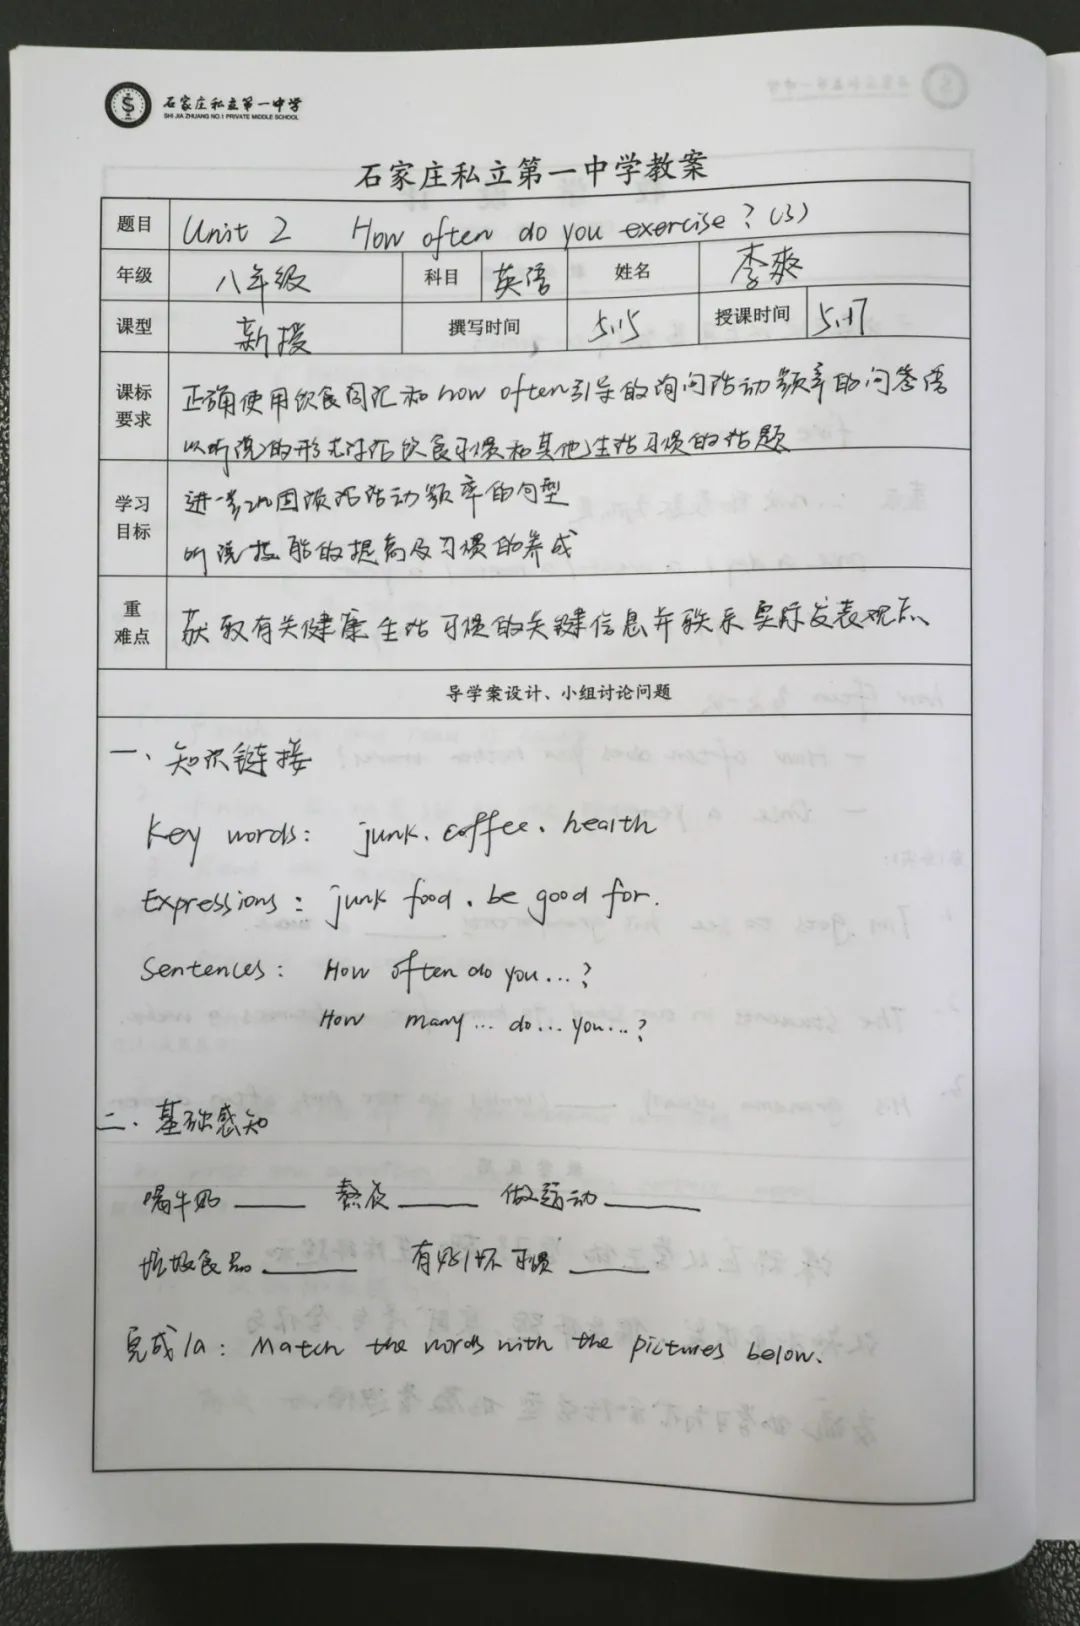 石家庄私立第一中学
SHI JIA ZHUANG NO.1 PRIVATE MIDDLE SCHOOL
石家庄私立第一中学教案
题目 Unit 2 How often do you exercise? (3)
年级 八年级 科目 英语 姓名 李爽
课型 新授 撰写时间 5.15 授课时间 5.17
课标要求 正确使用饮食词汇和how often引导的询问活动频率的问答语
以听说的形式谈论饮食习惯和其他生活习惯的话题
学习目标 进一步巩固谈论活动频率的句型
听说技能的提高及习惯的养成
重难点 获取有关健康生活习惯的关键信息并联系实际发表观点
导学案设计、小组讨论问题
一、知识链接
Key words: junk. coffee. health
Expressions: junk food. be good for.
Sentences: How often do you...?
How many... do... you...?
二、基础感知
喝牛奶 ____ 熬夜 ____ 做运动 ____
垃圾食品 ____ 有好/坏习惯 ____
完成1a: Match the words with the pictures below.